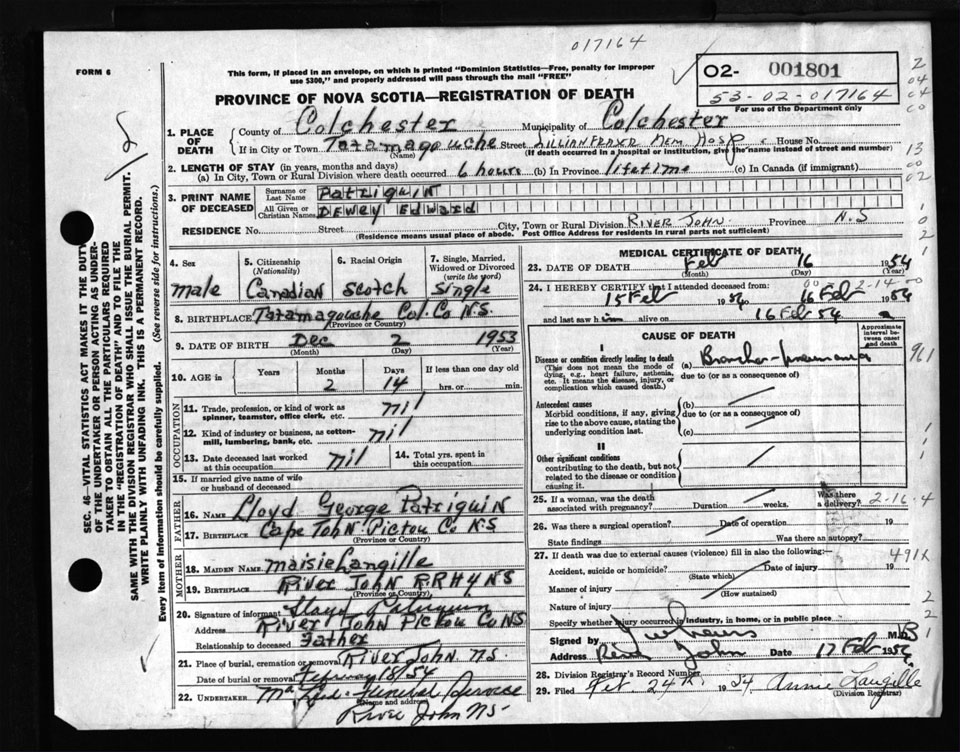 017164
FORM 6
This form, if placed in an envelope, on which is printed "Dominion Statistics—Free, penalty for improper
use $300," and properly addressed will pass through the mail "FREE"
02- 001801
53-02-017164
For use of the Department only
PROVINCE OF NOVA SCOTIA—REGISTRATION OF DEATH
1. PLACE OF DEATH
County of Colchester Municipality of Colchester
If in City or Town Tatamagouche Street Lillian Fraser Mem Hosp House No.
(Name) (If death occurred in a hospital or institution, give the name instead of street and number)
2. LENGTH OF STAY (in years, months and days)
(a) In City, Town or Rural Division where death occurred 6 hours (b) In Province lifetime (c) In Canada (if immigrant)
3. PRINT NAME OF DECEASED
Surname or Last Name Patriquin
All Given or Christian Names Dewey Edward
RESIDENCE No. Street City, Town or Rural Division River John Province N.S
(Residence means usual place of abode. Post Office Address for residents in rural parts not sufficient)
4. Sex
male
5. Citizenship
(Nationality)
Canadian
6. Racial Origin
Scotch
7. Single, Married,
Widowed or Divorced
(write the word)
Single
8. BIRTHPLACE Tatamagouche Col. Co N.S.
(Province or Country)
9. DATE OF BIRTH Dec 2 1953
(Month) (Day) (Year)
10. AGE in Years Months Days If less than one day old
2 14 hrs. or min.
OCCUPATION
11. Trade, profession, or kind of work as
spinner, teamster, office clerk, etc. nil
12. Kind of industry or business, as cotton-
mill, lumbering, bank, etc. nil
13. Date deceased last worked
at this occupation nil
14. Total yrs. spent in
this occupation
15. If married give name of wife
or husband of deceased
FATHER
16. NAME Lloyd George Patriquin
17. BIRTHPLACE Cape John Pictou Co N.S
(Province or Country)
MOTHER
18. MAIDEN NAME maisie Langille
19. BIRTHPLACE River John R.R.#4 NS
(Province or Country)
20. Signature of informant Lloyd Patriquin
Address River John Pictou Co NS
Relationship to deceased Father
21. Place of burial, cremation or removal River John N.S.
Date of burial or removal February 18/54
22. UNDERTAKER Funeral Service
(Name and address)
River John NS
MEDICAL CERTIFICATE OF DEATH
23. DATE OF DEATH Feb 16 1954
(Month) (Day) (Year)
24. I HEREBY CERTIFY that I attended deceased from: 00 2-14 00
15 Feb 1954 to 16 Feb 1954
and last saw him alive on 16 Feb 54
CAUSE OF DEATH
Approximate
interval be-
tween onset
and death
I
Disease or condition directly leading to death
(This does not mean the mode of
dying, e.g., heart failure, asthenia,
etc. It means the disease, injury, or
complication which caused death.)
(a) Broncho-pneumonia
due to (or as a consequence of)
Antecedent causes
Morbid conditions, if any, giving
rise to the above cause, stating the
underlying condition last.
(b)
due to (or as a consequence of)
(c)
II
Other significant conditions
contributing to the death, but not
related to the disease or condition
causing it.
25. If a woman, was the death
associated with pregnancy? Duration weeks. Was there
a delivery? 2-16-4
26. Was there a surgical operation? Date of operation 19
State findings Was there an autopsy?
27. If death was due to external causes (violence) fill in also the following:— 491X
Accident, suicide or homicide? Date of injury 19
(State which)
Manner of injury
(How sustained)
Nature of injury
Specify whether injury occurred in industry, in home, or in public place
Signed by M.D.
Address River John Date 17 Feb 1954
28. Division Registrar's Record Number
29. Filed Feb. 24th 1954 Annie Langille
(Division Registrar)
SEC. 46—VITAL STATISTICS ACT MAKES IT THE DUTY
OF THE UNDERTAKER OR PERSON ACTING AS UNDER-
TAKER TO OBTAIN ALL THE PARTICULARS REQUIRED
IN THE "REGISTRATION OF DEATH" AND TO FILE THE
SAME WITH THE DIVISION REGISTRAR WHO SHALL ISSUE THE BURIAL PERMIT.
WRITE PLAINLY WITH UNFADING INK. THIS IS A PERMANENT RECORD.
Every item of Information should be carefully supplied. (See reverse side for instructions.)
2
04
04
00
13
00
02
1
0
2
1
961
2
2
1